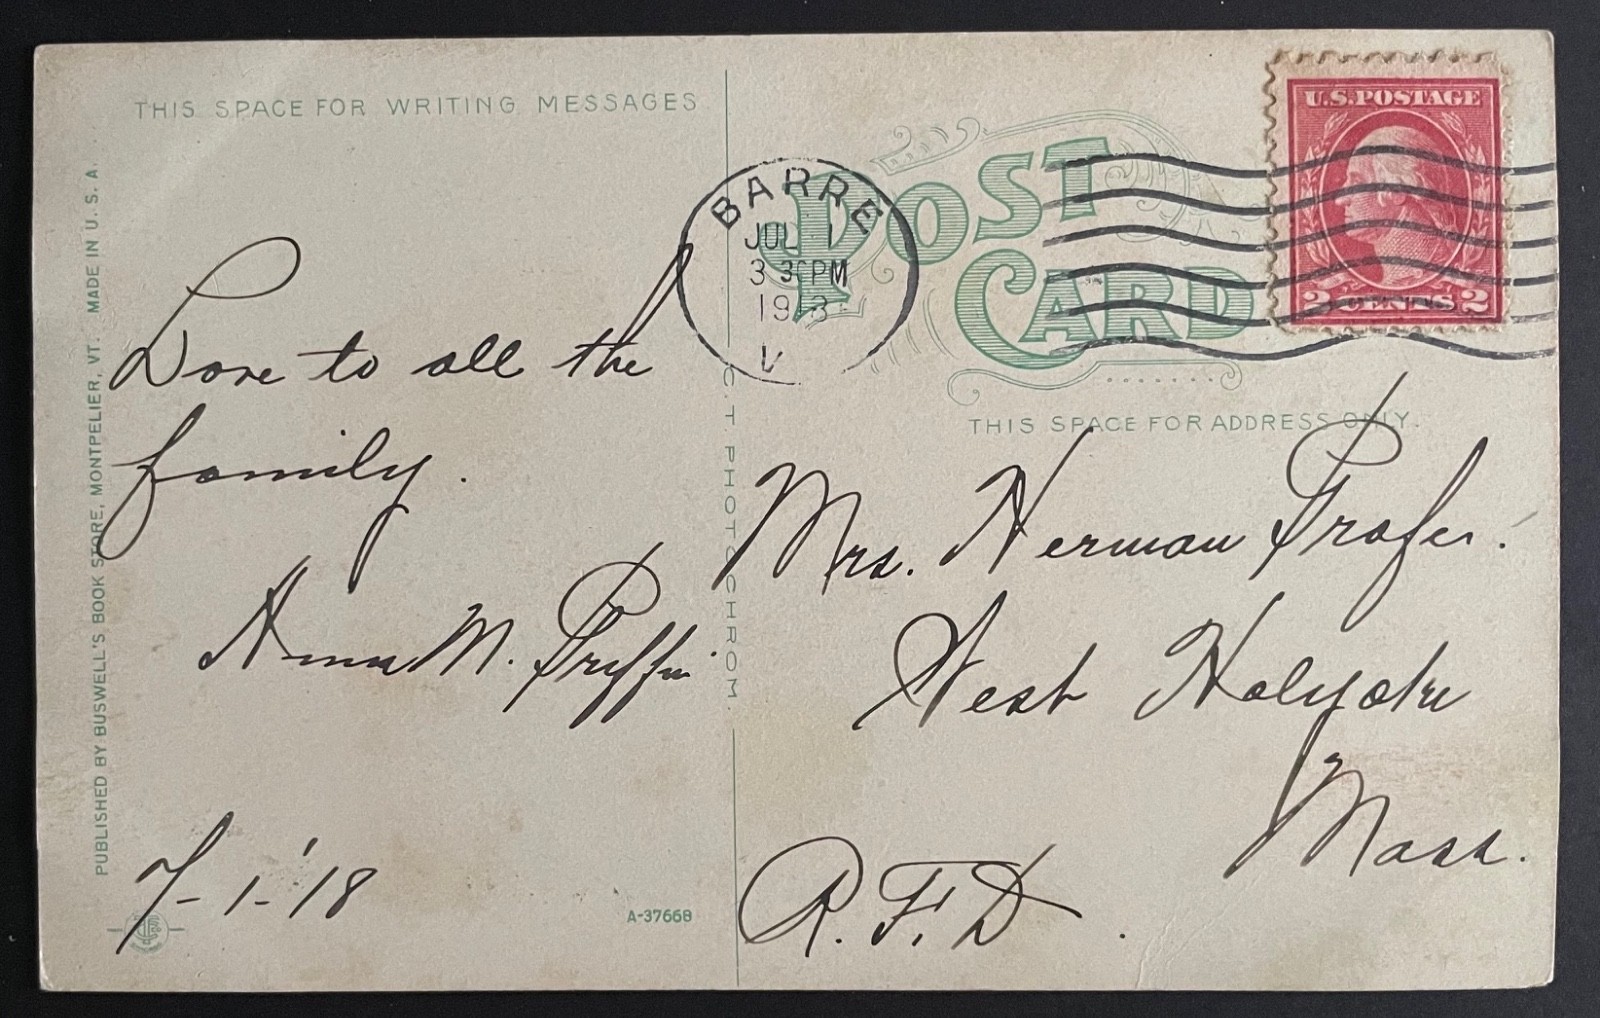 THIS SPACE FOR WRITING MESSAGES
Love to all the
family.
Anna M.
7-1-'18
PUBLISHED BY BUSWELL'S BOOK STORE, MONTPELIER, VT. MADE IN U. S. A.
A-37668
C. T. PHOTOCHROM
BARRE
JUL 1
3 30 PM
1918
V
POST
CARD
U.S. POSTAGE
2 CENTS 2
THIS SPACE FOR ADDRESS ONLY.
Mrs. Herman
West Holyoke
Mass.
R.F.D.